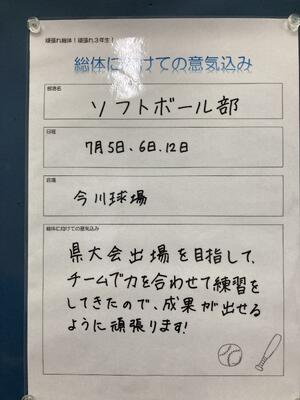 頑張れ総体！頑張れ３年生！
総体に向けての意気込み
部活名
ソフトボール部
日程
7月5日、6日、12日
会場
今川球場
総体に向けての意気込み
県大会出場を目指して、
チームで力を合わせて練習を
してきたので、成果が出せる
ように頑張ります!